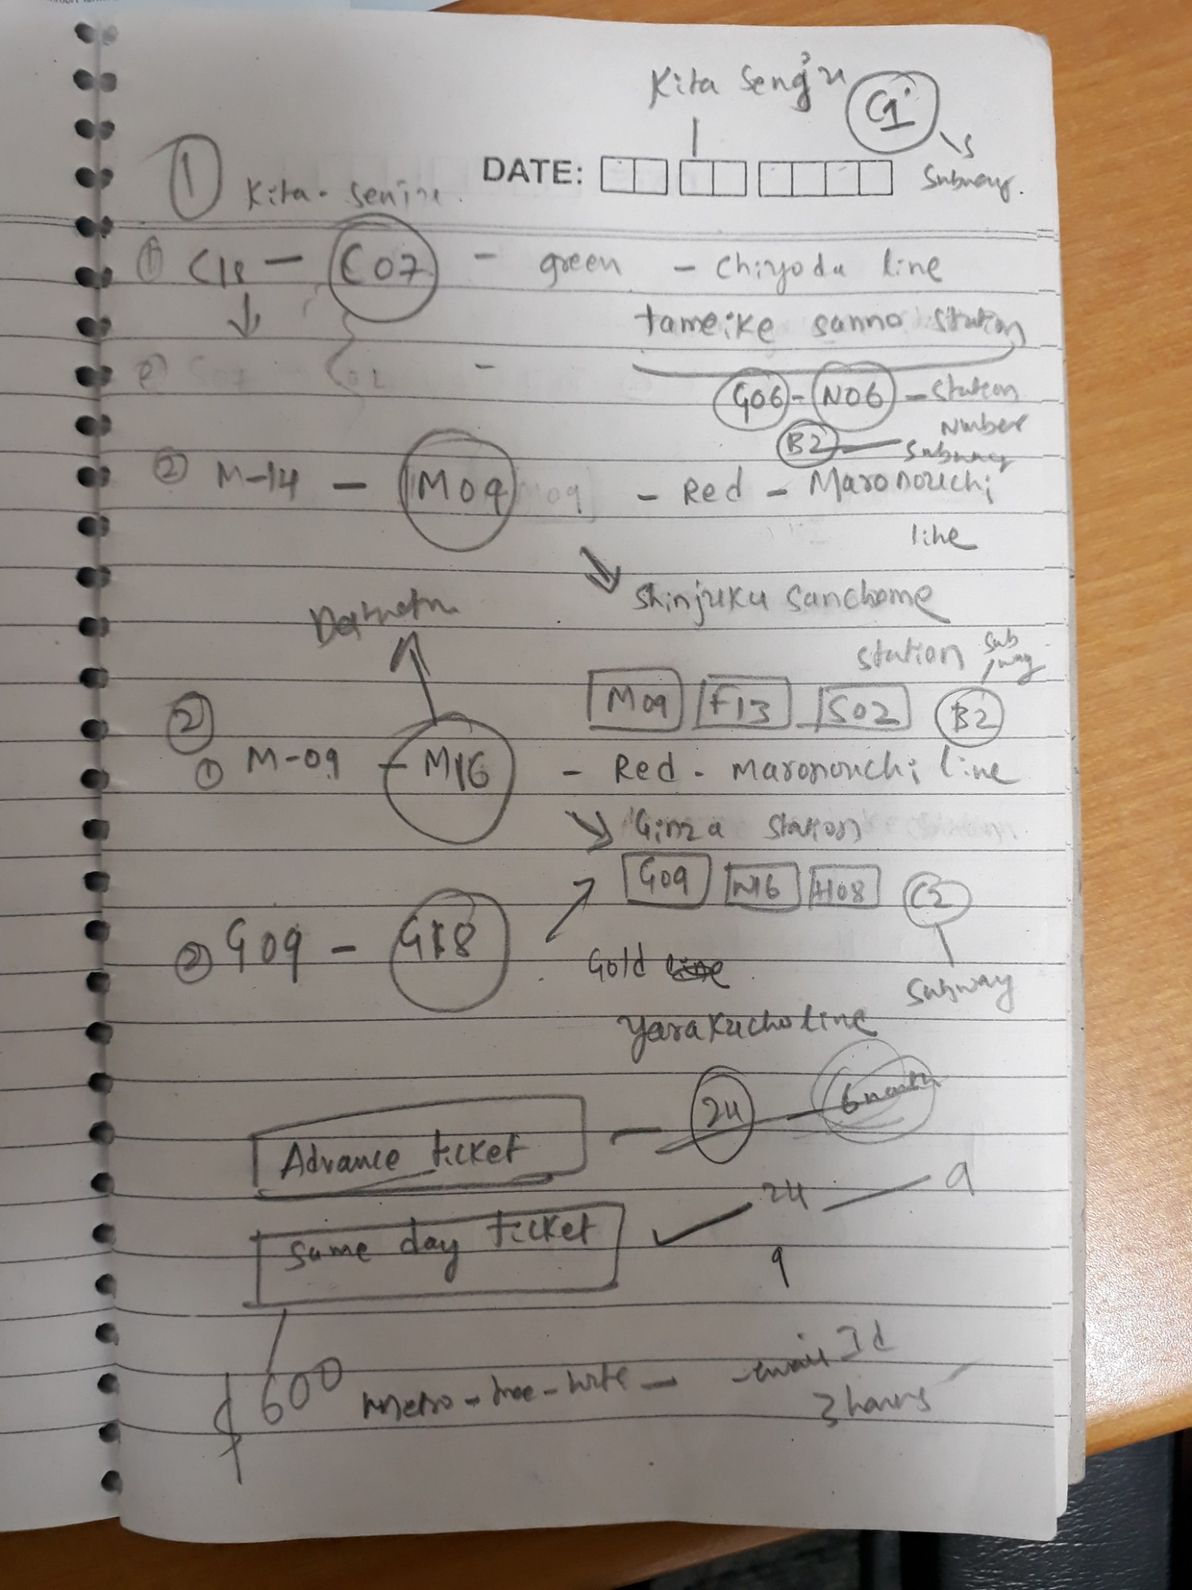 Kita Senju C1
DATE: Subway.
1 Kita-Senju.
1 C18 - C07 - green - Chiyoda line
tameike sanno station
G06 - N06 - Station Number
B2 - Subway
2 M-14 - M09 - Red - Maronouchi line
Shinjuku Sanchome station
M09 F13 S02 B2 Subway
2
1 M-09 - M16 - Red - maronouchi line
Ginza station
G09 M16 H08 C2
2 G09 - G18 Gold
Subway
yarakucho line
Advance ticket - 24
Same day ticket 24 - 9
9
600 metro - - - email Id
3 hours